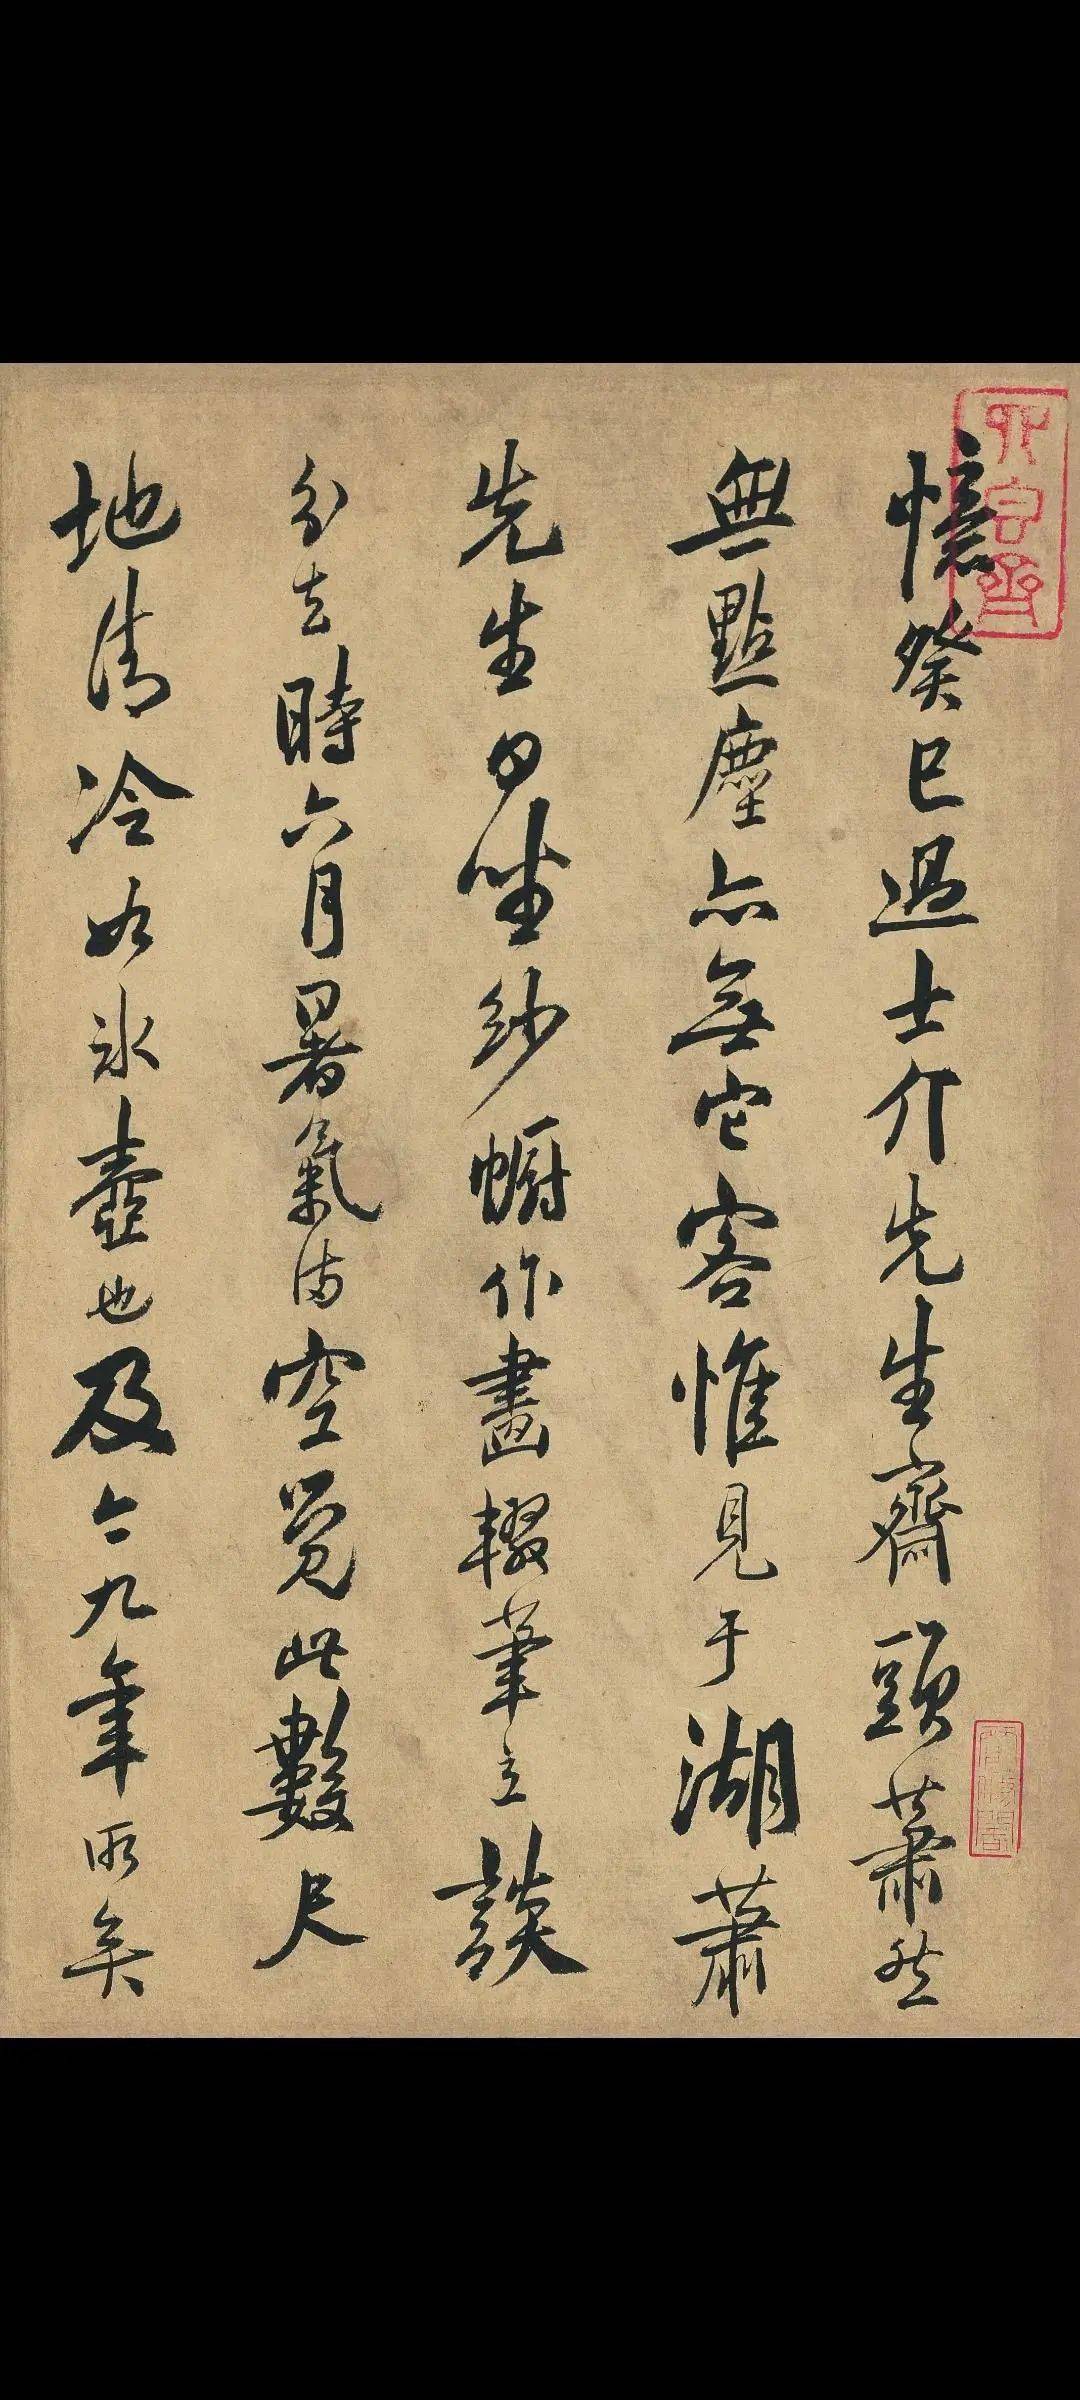 憶癸巳過士介先生齋頭蕭然
無點塵亦無它客惟見于湖蕭
先生日坐紗幮作畫輟筆立談
分去時六月暑氣滿空覓此數尺
地清冷如冰壺也及今九年所矣